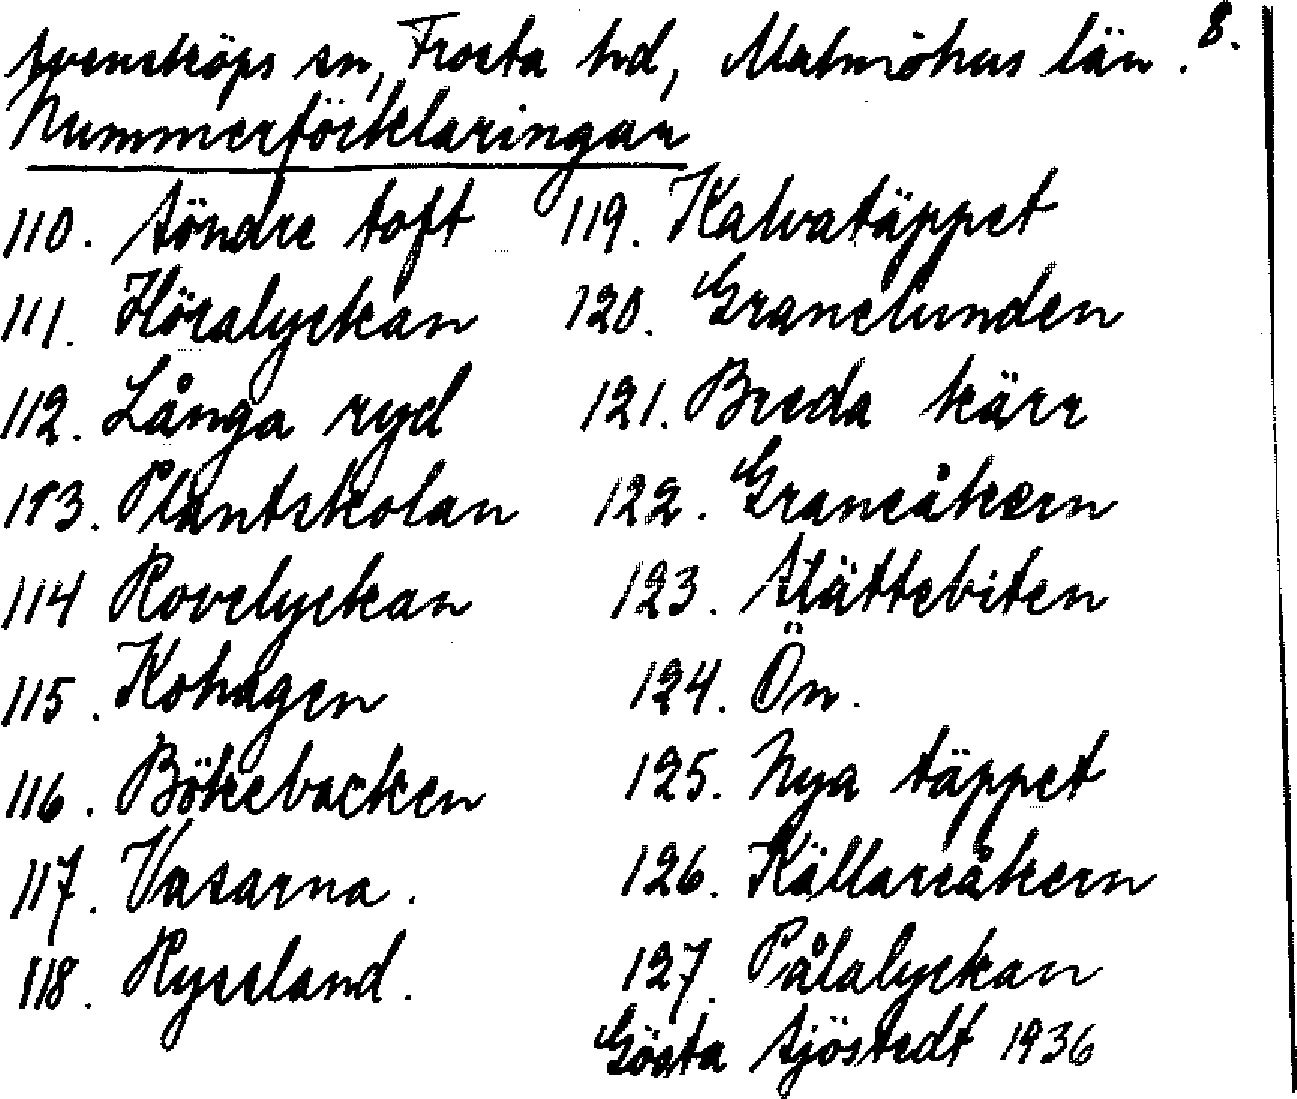 8.
Svensköps sn, Frosta hd, Malmöhus län.
Nummerförklaringar
110. Söndre toft
111. Höralyckan
112. Långa ryd
113. Plantskolan
114 Rovelyckan
115. Kohagen
116. Bökebacken
117. Vasarna.
118. Ryssland.
119. Kalvatäppet
120. Granelunden
121. Breda kärr
122. Graneåkern
123. Slättebiten
124. Ön.
125. Nya täppet
126. Källareåkern
127. Pålalyckan
Gösta Sjöstedt 1936